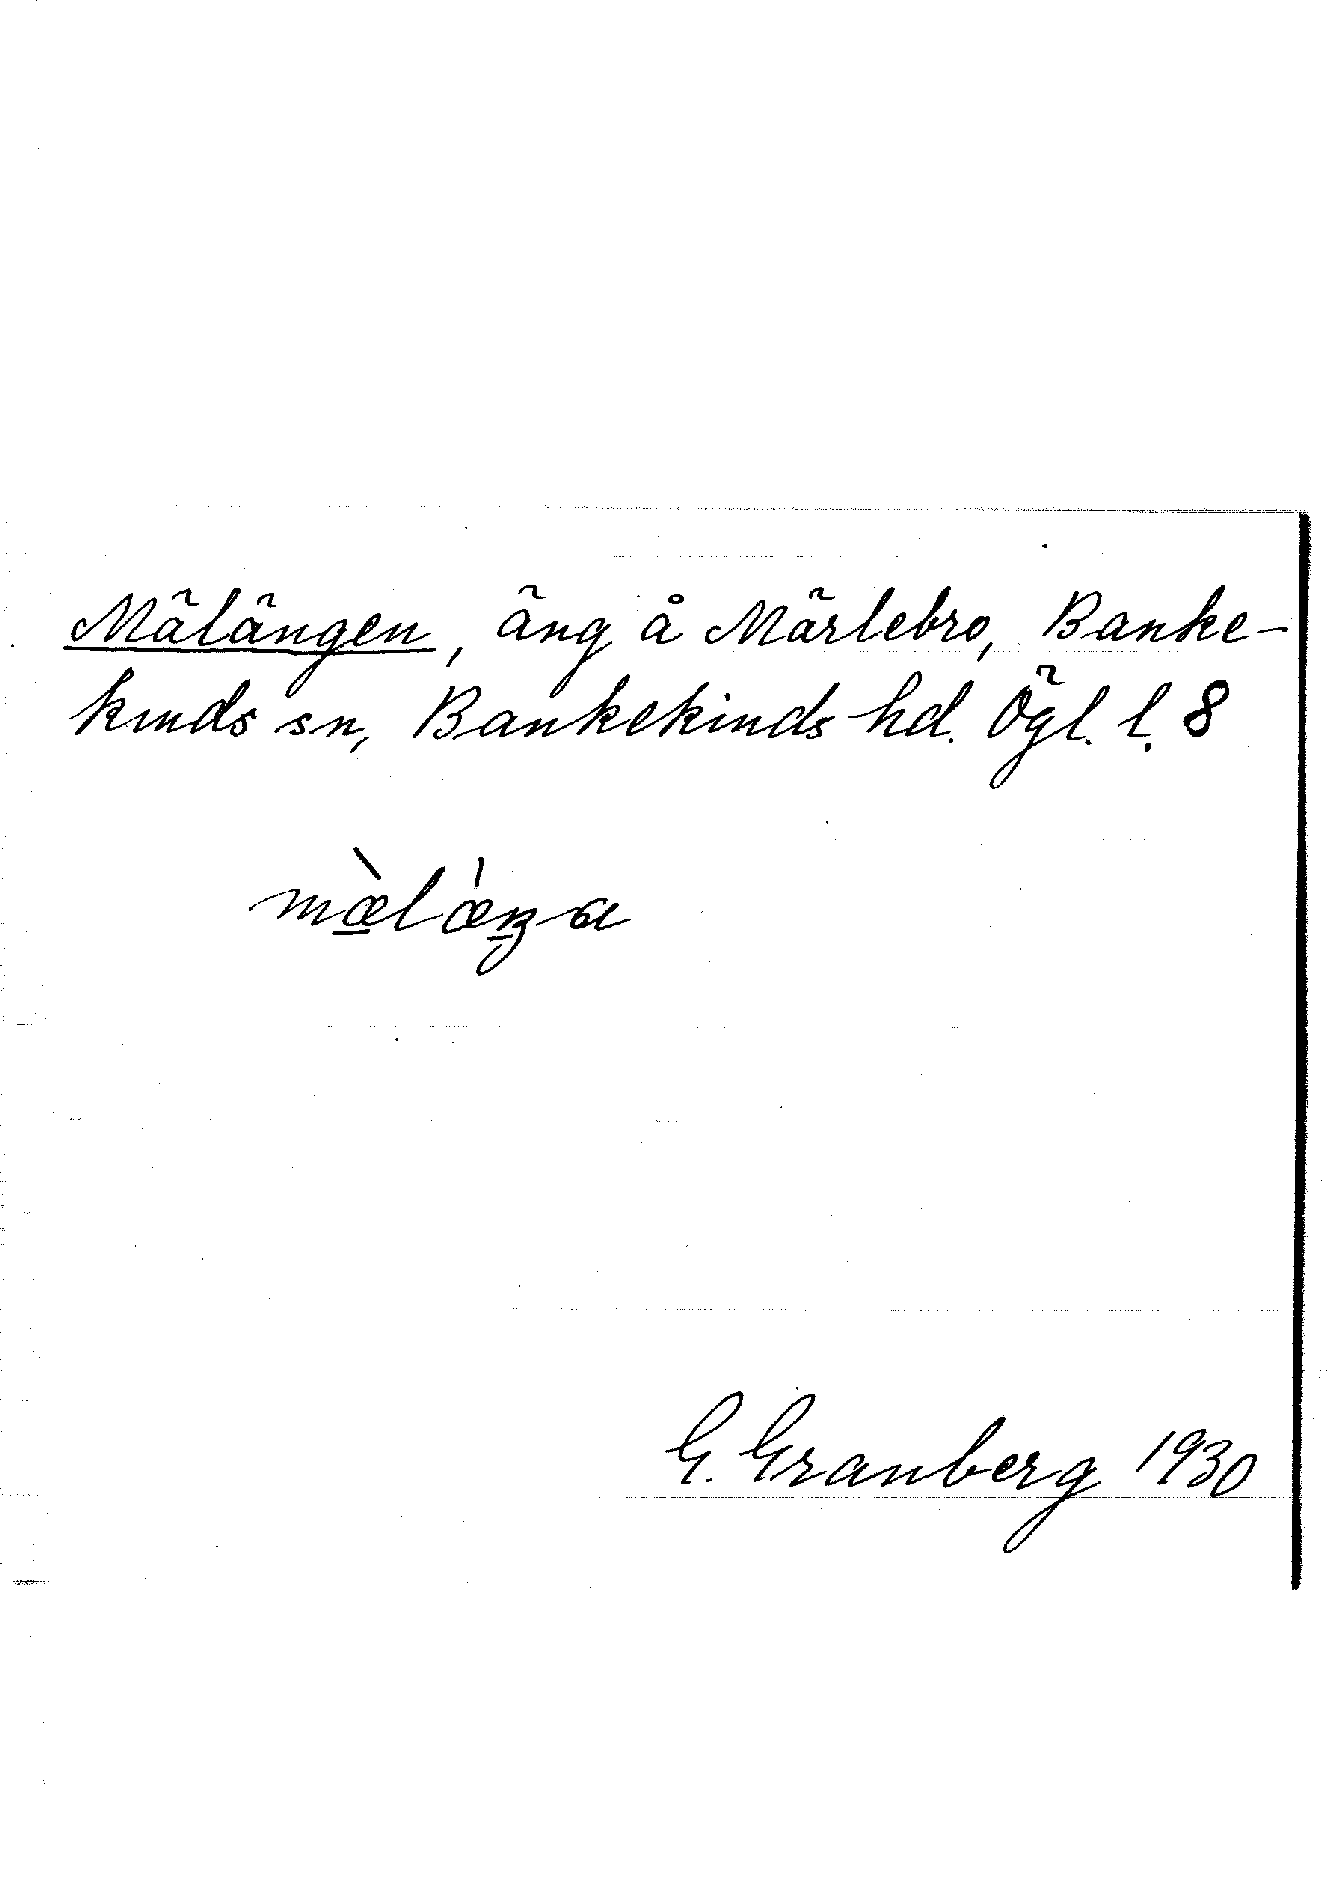 Mälängen, äng å Märlebro, Banke-
kinds sn, Bankekinds hd. Ögl. l. 8
mæ̀læ̀ŋa
G. Granberg 1930